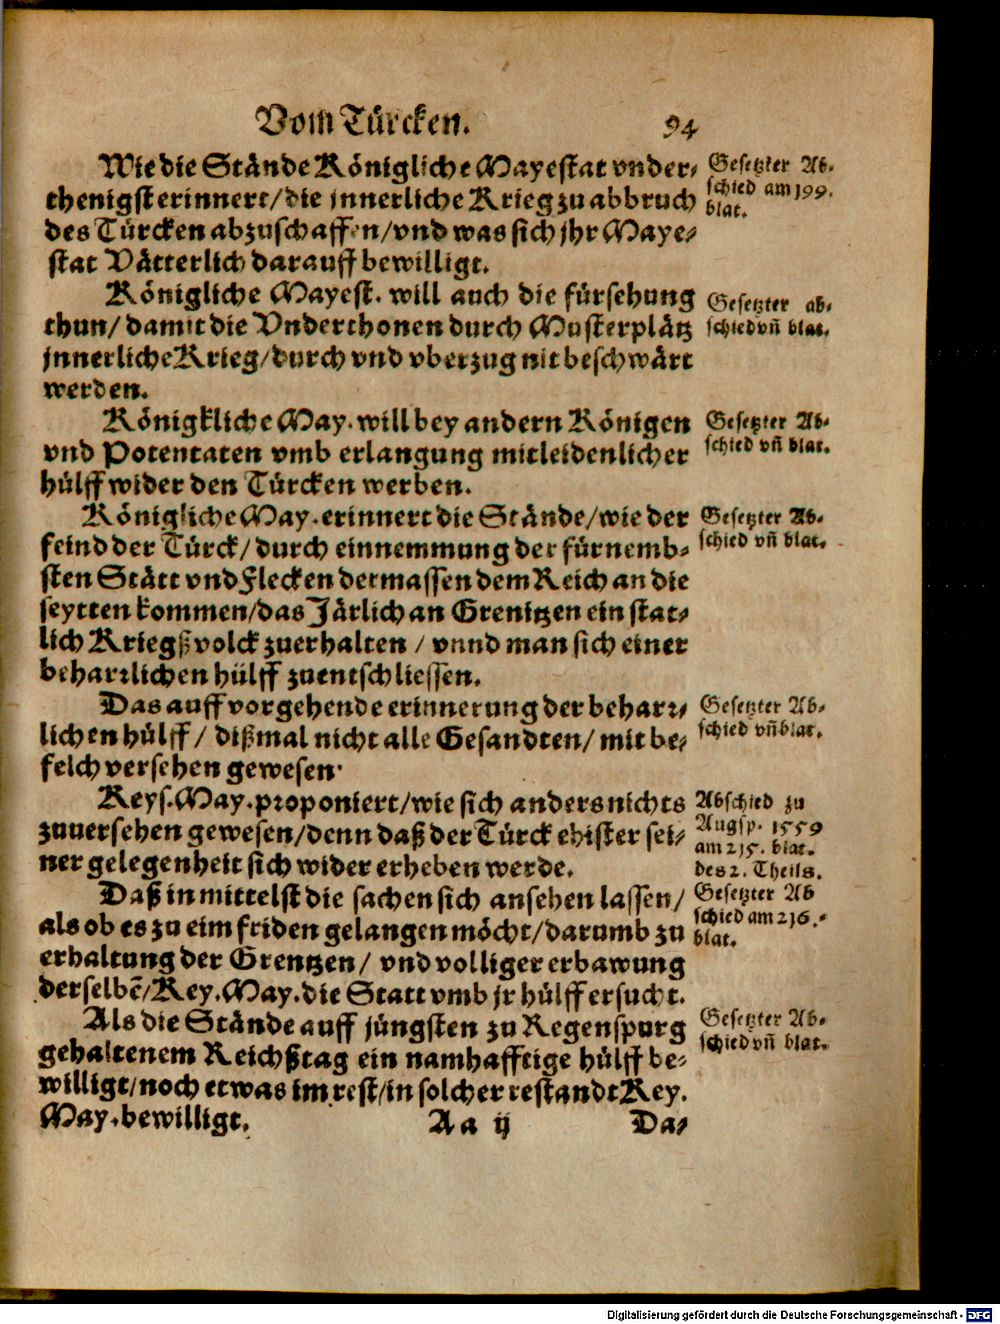 Vom Türcken. 94
Wie die Stände Königliche Mayestat vnder⸗
thenigst erinnert/die jnnerliche Krieg zu abbruch
des Türcken abzuschaffen/vnd was sich jhr Maye⸗
stat Vätterlich darauff bewilligt.
Gesetzter Ab⸗
schied am 199.
blat.
Königliche Mayest. will auch die fürsehung
thun/ damit die Vnderthonen durch Musterplätz
jnnerliche Krieg/durch vnd vberzug nit beschwärt
werden.
Gesetzter ab⸗
schied vñ blat.
Königkliche May. will bey andern Königen
vnd Potentaten vmb erlangung mitleidenlicher
hülff wider den Türcken werben.
Gesetzter Ab⸗
schied vñ blat.
Königliche May. erinnert die Stände/wie der
feind der Türck/durch einnemmung der fürnemb⸗
sten Stätt vnd Flecken dermassen dem Reich an die
seytten kommen/das Järlich an Grenitzen ein stat⸗
lich Kriegßvolck zuerhalten / vnnd man sich einer
beharzlichen hülff zuentschliessen.
Gesetzter Ab⸗
schied vñ blat.
Das auff vorgehende erinnerung der beharz⸗
lichen hülff/ dißmal nicht alle Gesandten/ mit be⸗
felch versehen gewesen.
Gesetzter Ab⸗
schied vñ blat.
Keys. May. proponiert/wie sich anders nichts
zuuersehen gewesen/denn daß der Türck ehister sei⸗
ner gelegenheit sich wider erheben werde.
Abschied zu
Augsp. 1559
am 215. blat.
des 2. Theils.
Daß inmittelst die sachen sich ansehen lassen/
als ob es zu eim friden gelangen möcht/darumb zu
erhaltung der Grentzen/ vnd volliger erbawung
derselbē/Key. May. die Statt vmb jr hülff ersucht.
Gesetzter Ab
schied am 216.
blat.
Als die Stände auff jüngsten zu Regenspurg
gehaltenem Reichßtag ein namhafftige hülff be⸗
willigt/noch etwas im rest/in solcher restandt Key.
May. bewilligt.
Gesetzter Ab⸗
schied vñ blat.
Aa ij Da⸗
Digitalisierung gefördert durch die Deutsche Forschungsgemeinschaft - DFG